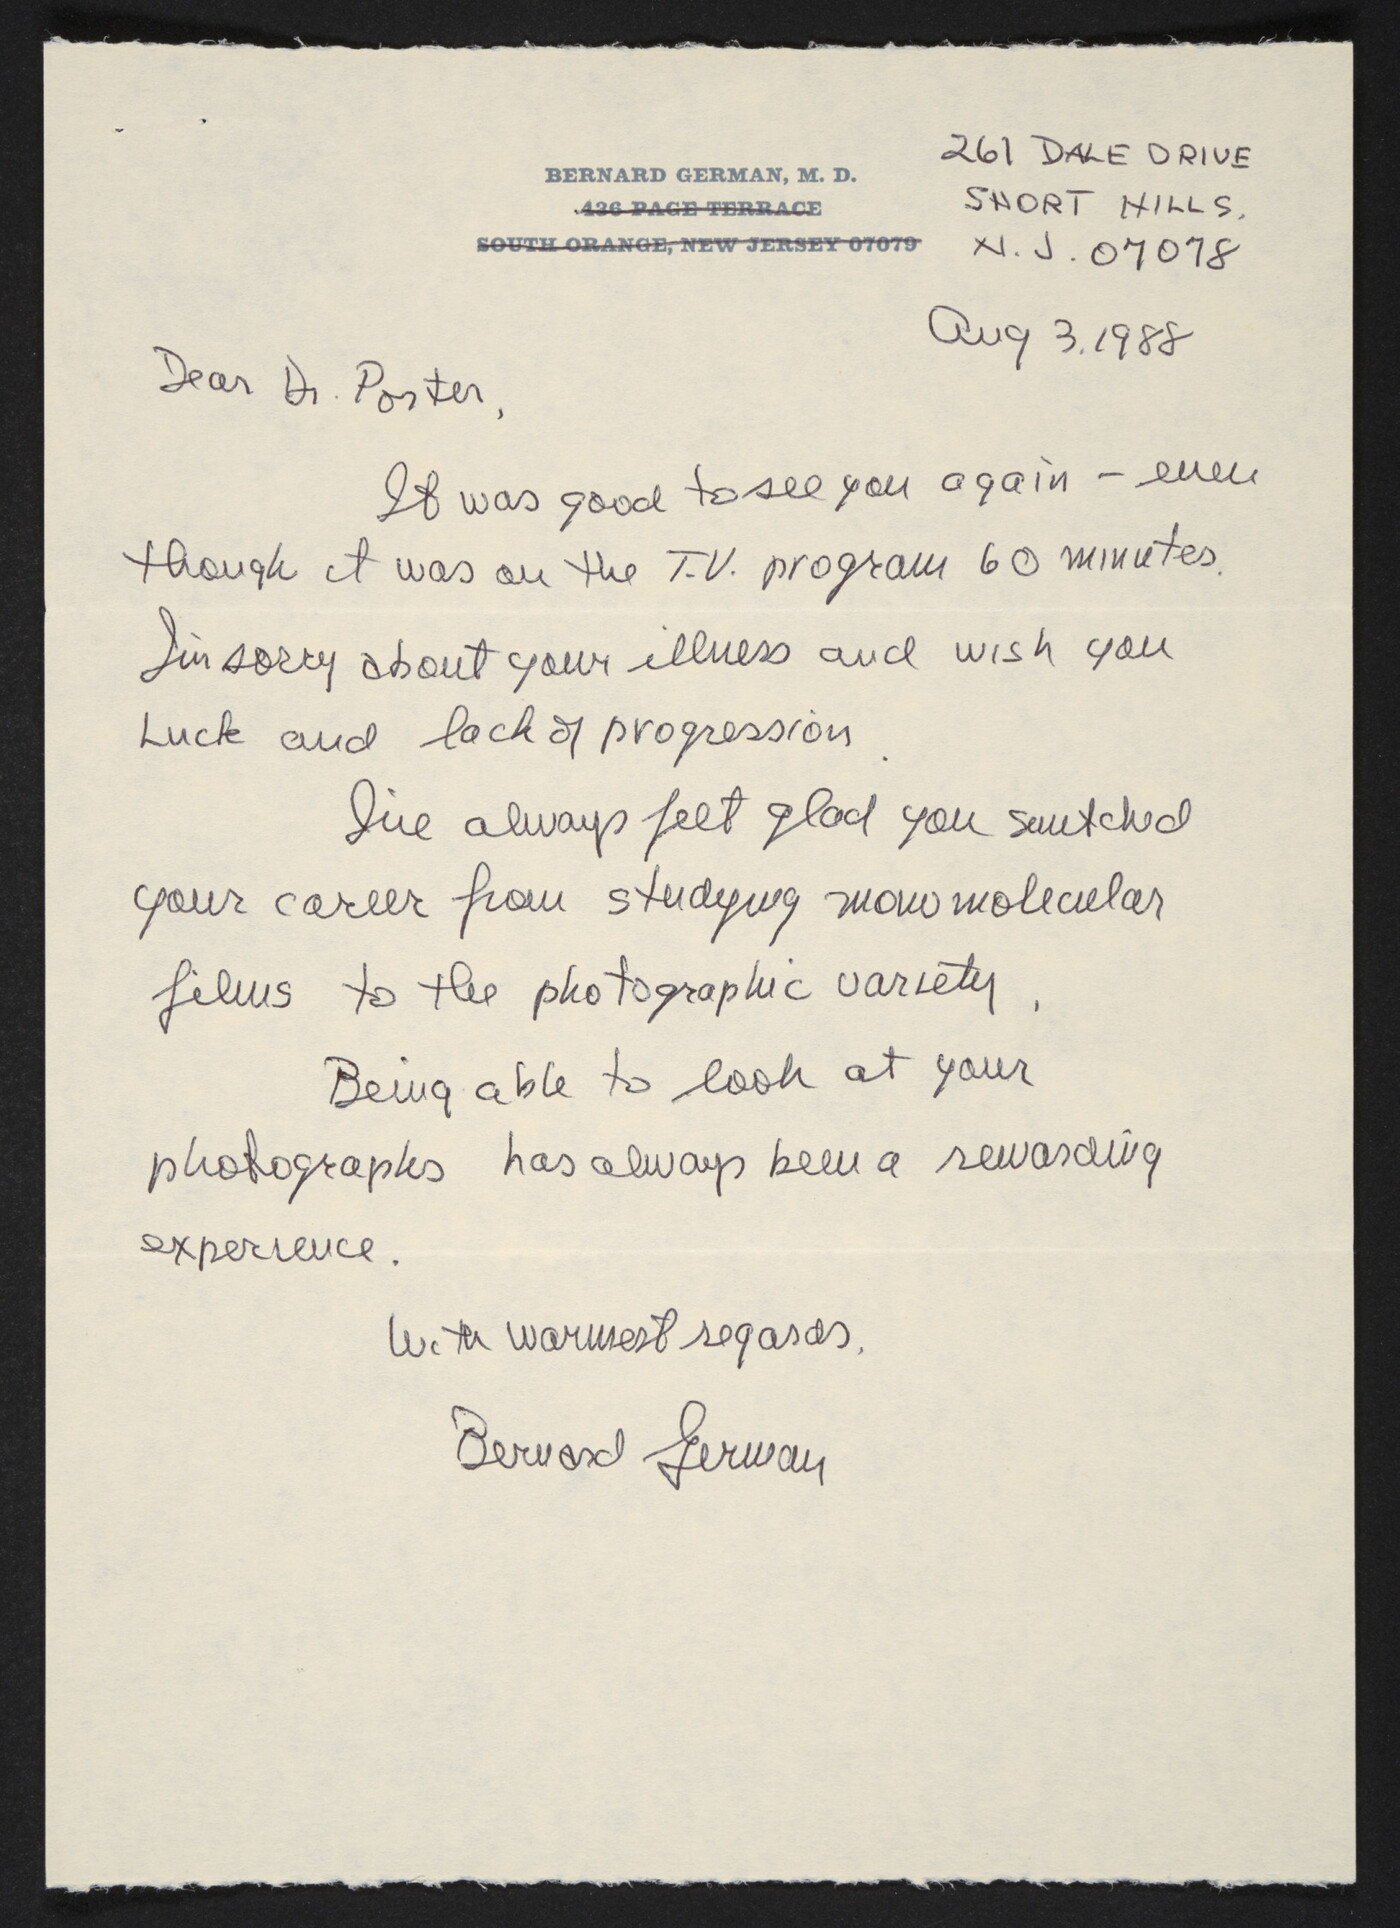 BERNARD GERMAN, M. D.
436 PAGE TERRACE
SOUTH ORANGE, NEW JERSEY 07079
261 DALE DRIVE
SHORT HILLS,
N. J. 07078
Aug 3, 1988
Dear Dr. Porter,
It was good to see you again – even
though it was on the T.V. program 60 minutes.
I'm sorry about your illness and wish you
Luck and lack of progression.
I've always felt glad you switched
your career from studying monomolecular
films to the photographic variety.
Being able to look at your
photographs has always been a rewarding
experience.
With warmest regards,
Bernard German